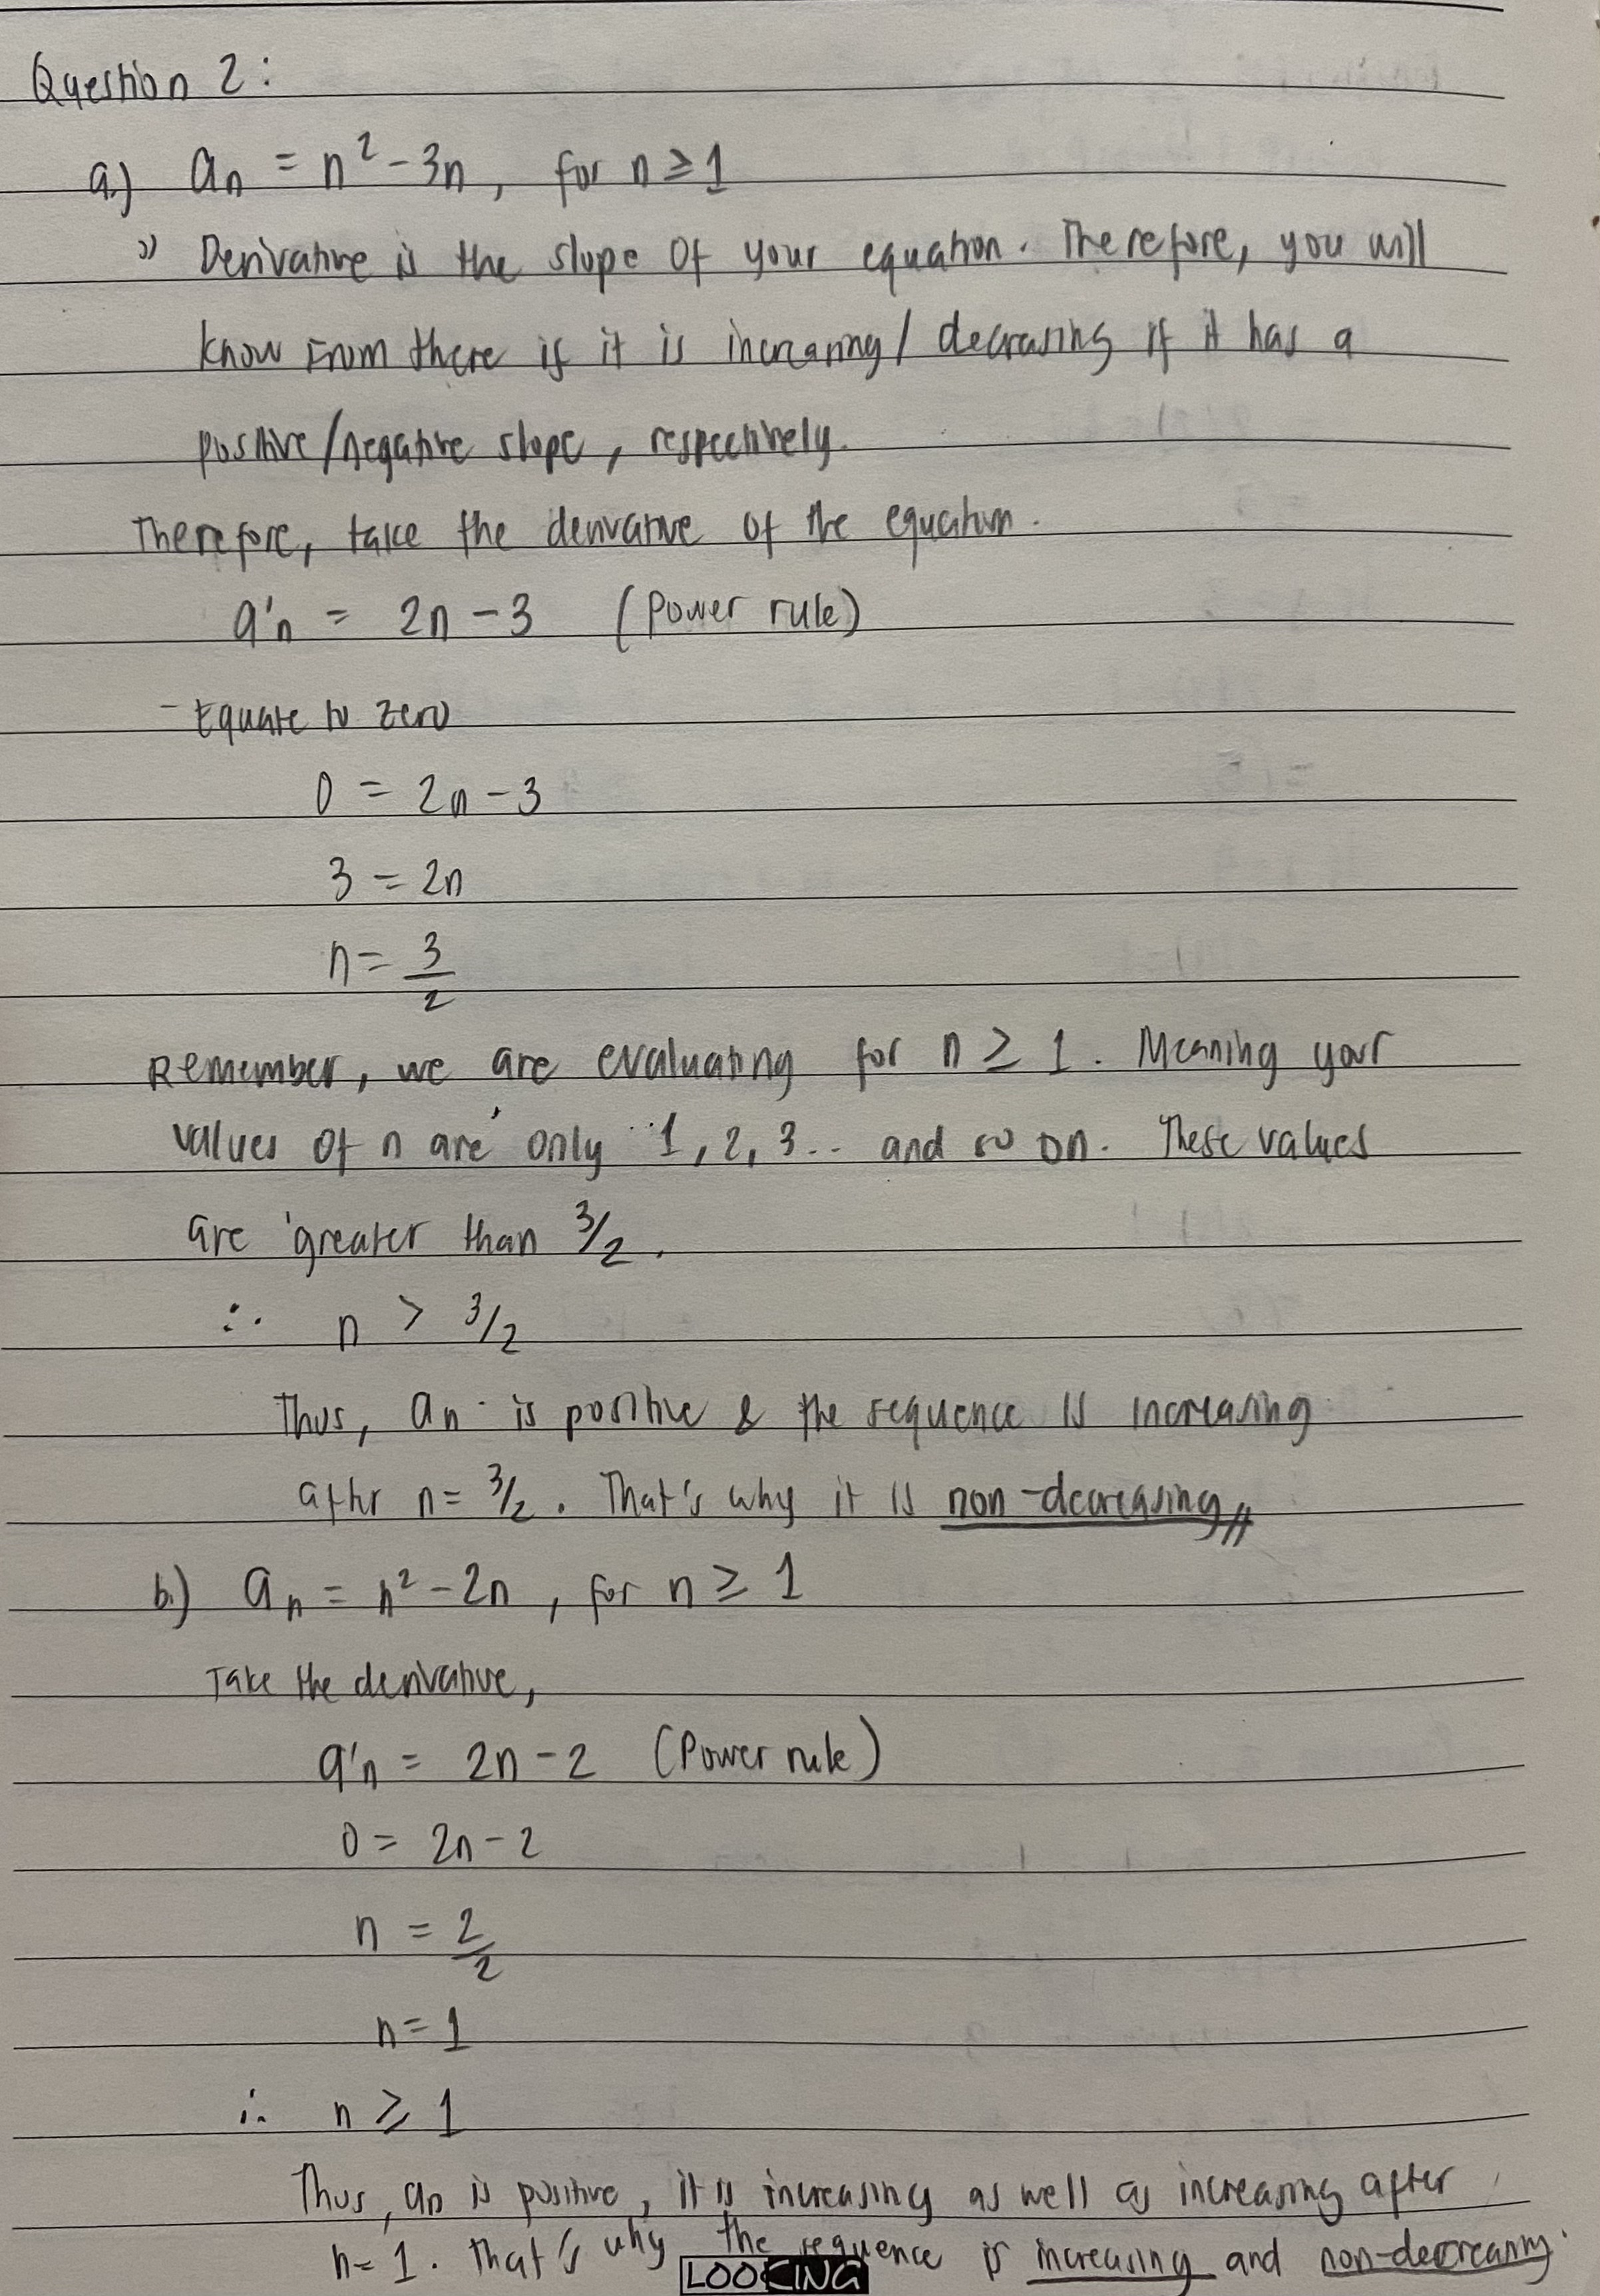 Question 2:
a.) an = n² - 3n, for n ≥ 1
Derivative is the slope of your equation. Therefore, you will
know from there if it is increasing / decreasing if it has a
positive/negative slope, respectively.
Therefore, take the derivative of the equation.
a'n = 2n - 3 (Power rule)
- Equate to zero
0 = 2n - 3
3 = 2n
n = 3/2
Remember, we are evaluating for n ≥ 1. Meaning your
values of n are only 1, 2, 3... and so on. These values
are greater than 3/2.
∴ n > 3/2
Thus, an is positive & the sequence is increasing
after n = 3/2. That's why it is non-decreasing//
b.) an = n² - 2n, for n ≥ 1
Take the derivative,
a'n = 2n - 2 (Power rule)
0 = 2n - 2
n = 2/2
n = 1
∴ n ≥ 1
Thus, an is positive, it is increasing as well as increasing after
n = 1. That's why the sequence is increasing and non-decreasing.
LOOKING